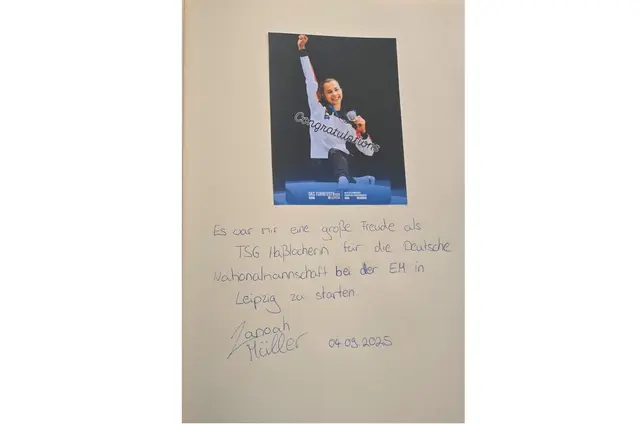 Congratulations
Es war mir eine große Freude als
TSG Haßlocherin für die Deutsche
Nationalmannschaft bei der EM in
Leipzig zu starten.
Müller 04.09.2025